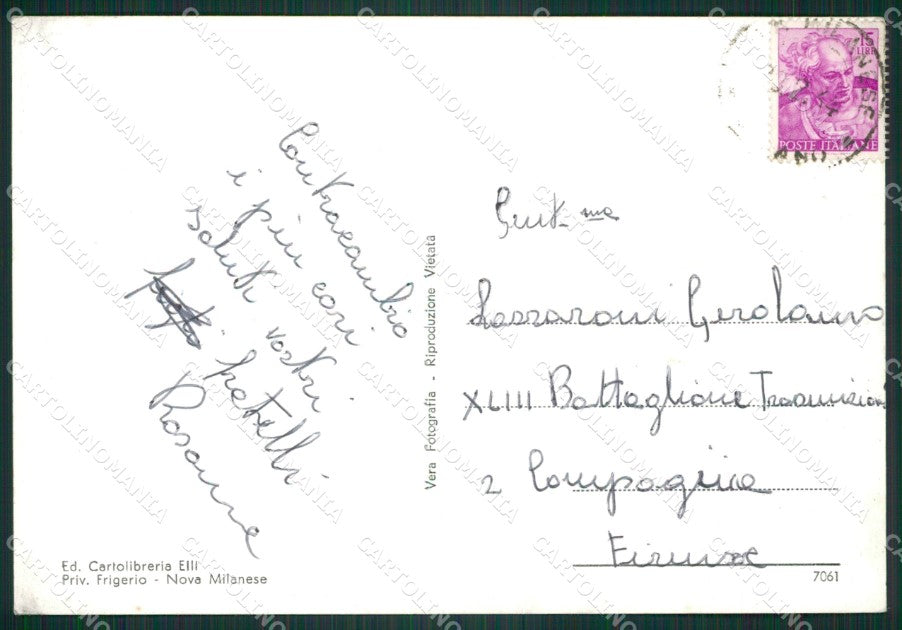 Contraccambio
i più cari
saluti vostri
fratelli
Rosanna
Vera Fotografia - Riproduzione Vietata
15
LIRE
POSTE ITALIANE
Gent.ma
Lazzaroni Gerolamo
XLIII Battaglione Trasmissioni
2 Compagnia
Firenze
Ed. Cartolibreria Elli
Priv. Frigerio - Nova Milanese
7061
CARTOLINOMANIA